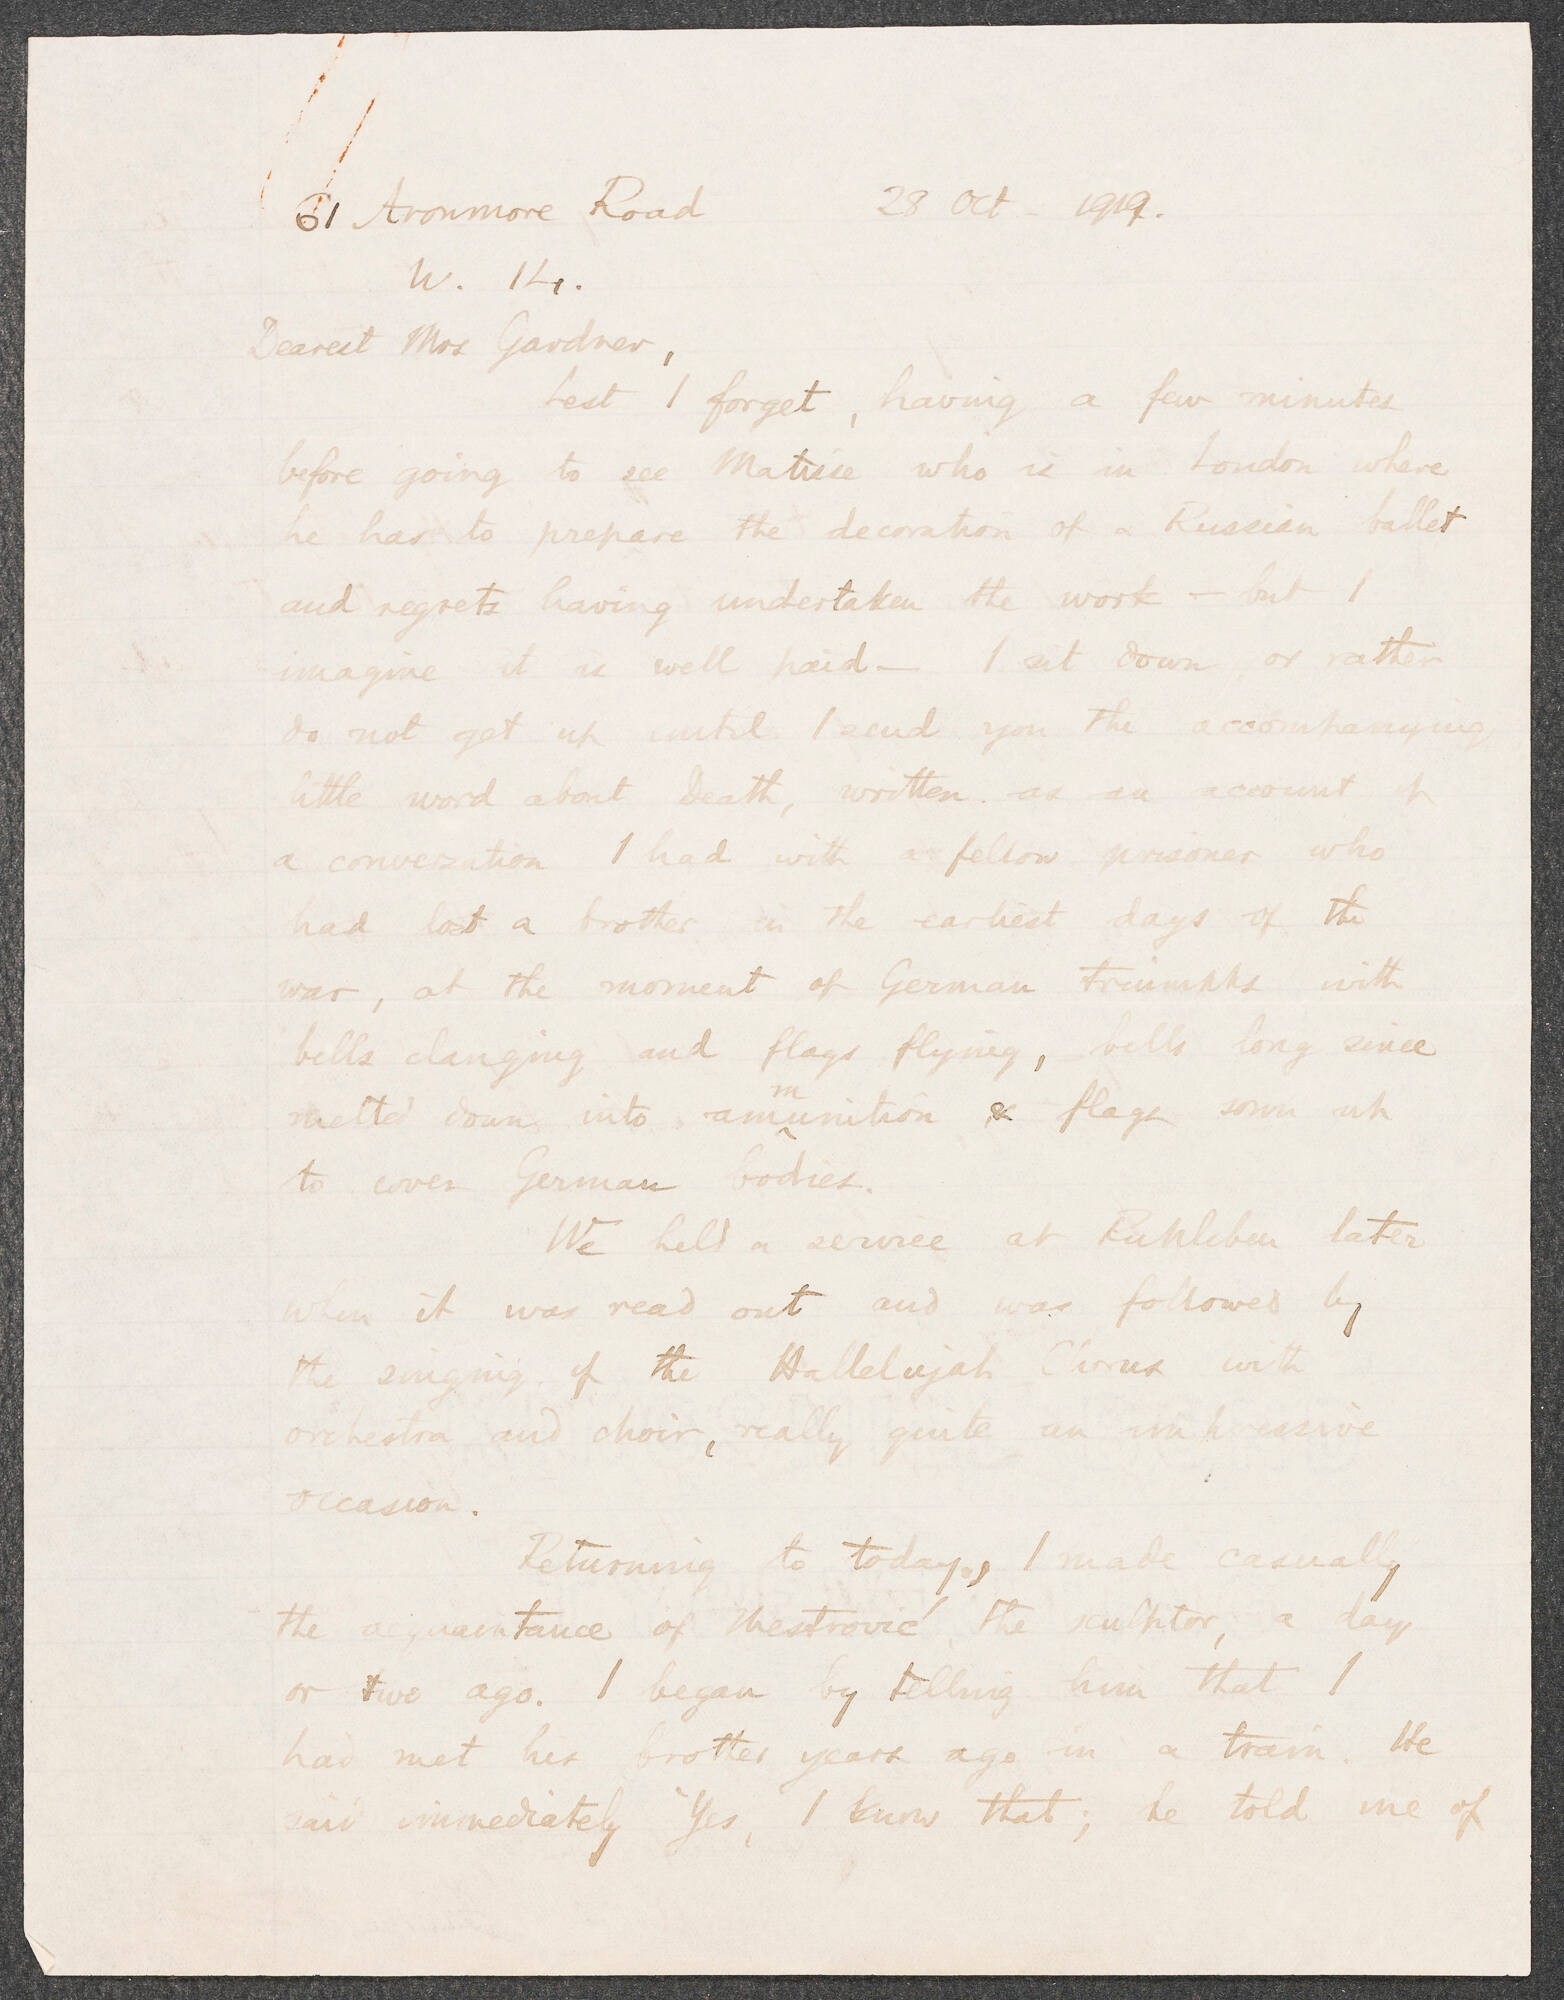 61 Avonmore Road 28 Oct - 1919.
W. 14.
Dearest Mrs Gardner,
Lest I forget, having a few minutes
before going to see Matisse who is in London where
he has to prepare the decoration of a Russian ballet
and regrets having undertaken the work - but I
imagine it is well paid - I sit down or rather
do not get up until I send you the accompanying
little word about Death, written as an account of
a conversation I had with a fellow prisoner who
had lost a brother in the earliest days of the
war, at the moment of German triumphs with
bells clanging and flags flying, bells long since
melted down into ammunition & flags sown up
to cover German bodies.
We held a service at Ruhleben later
when it was read out and was followed by
the singing of the Hallelujah Chorus with
orchestra and choir, really quite an impressive
occasion.
Returning to today, I made casually
the acquaintance of Mestrović the sculptor, a day
or two ago. I began by telling him that I
had met his brother years ago in a train. He
said immediately "Yes, I know that; he told me of